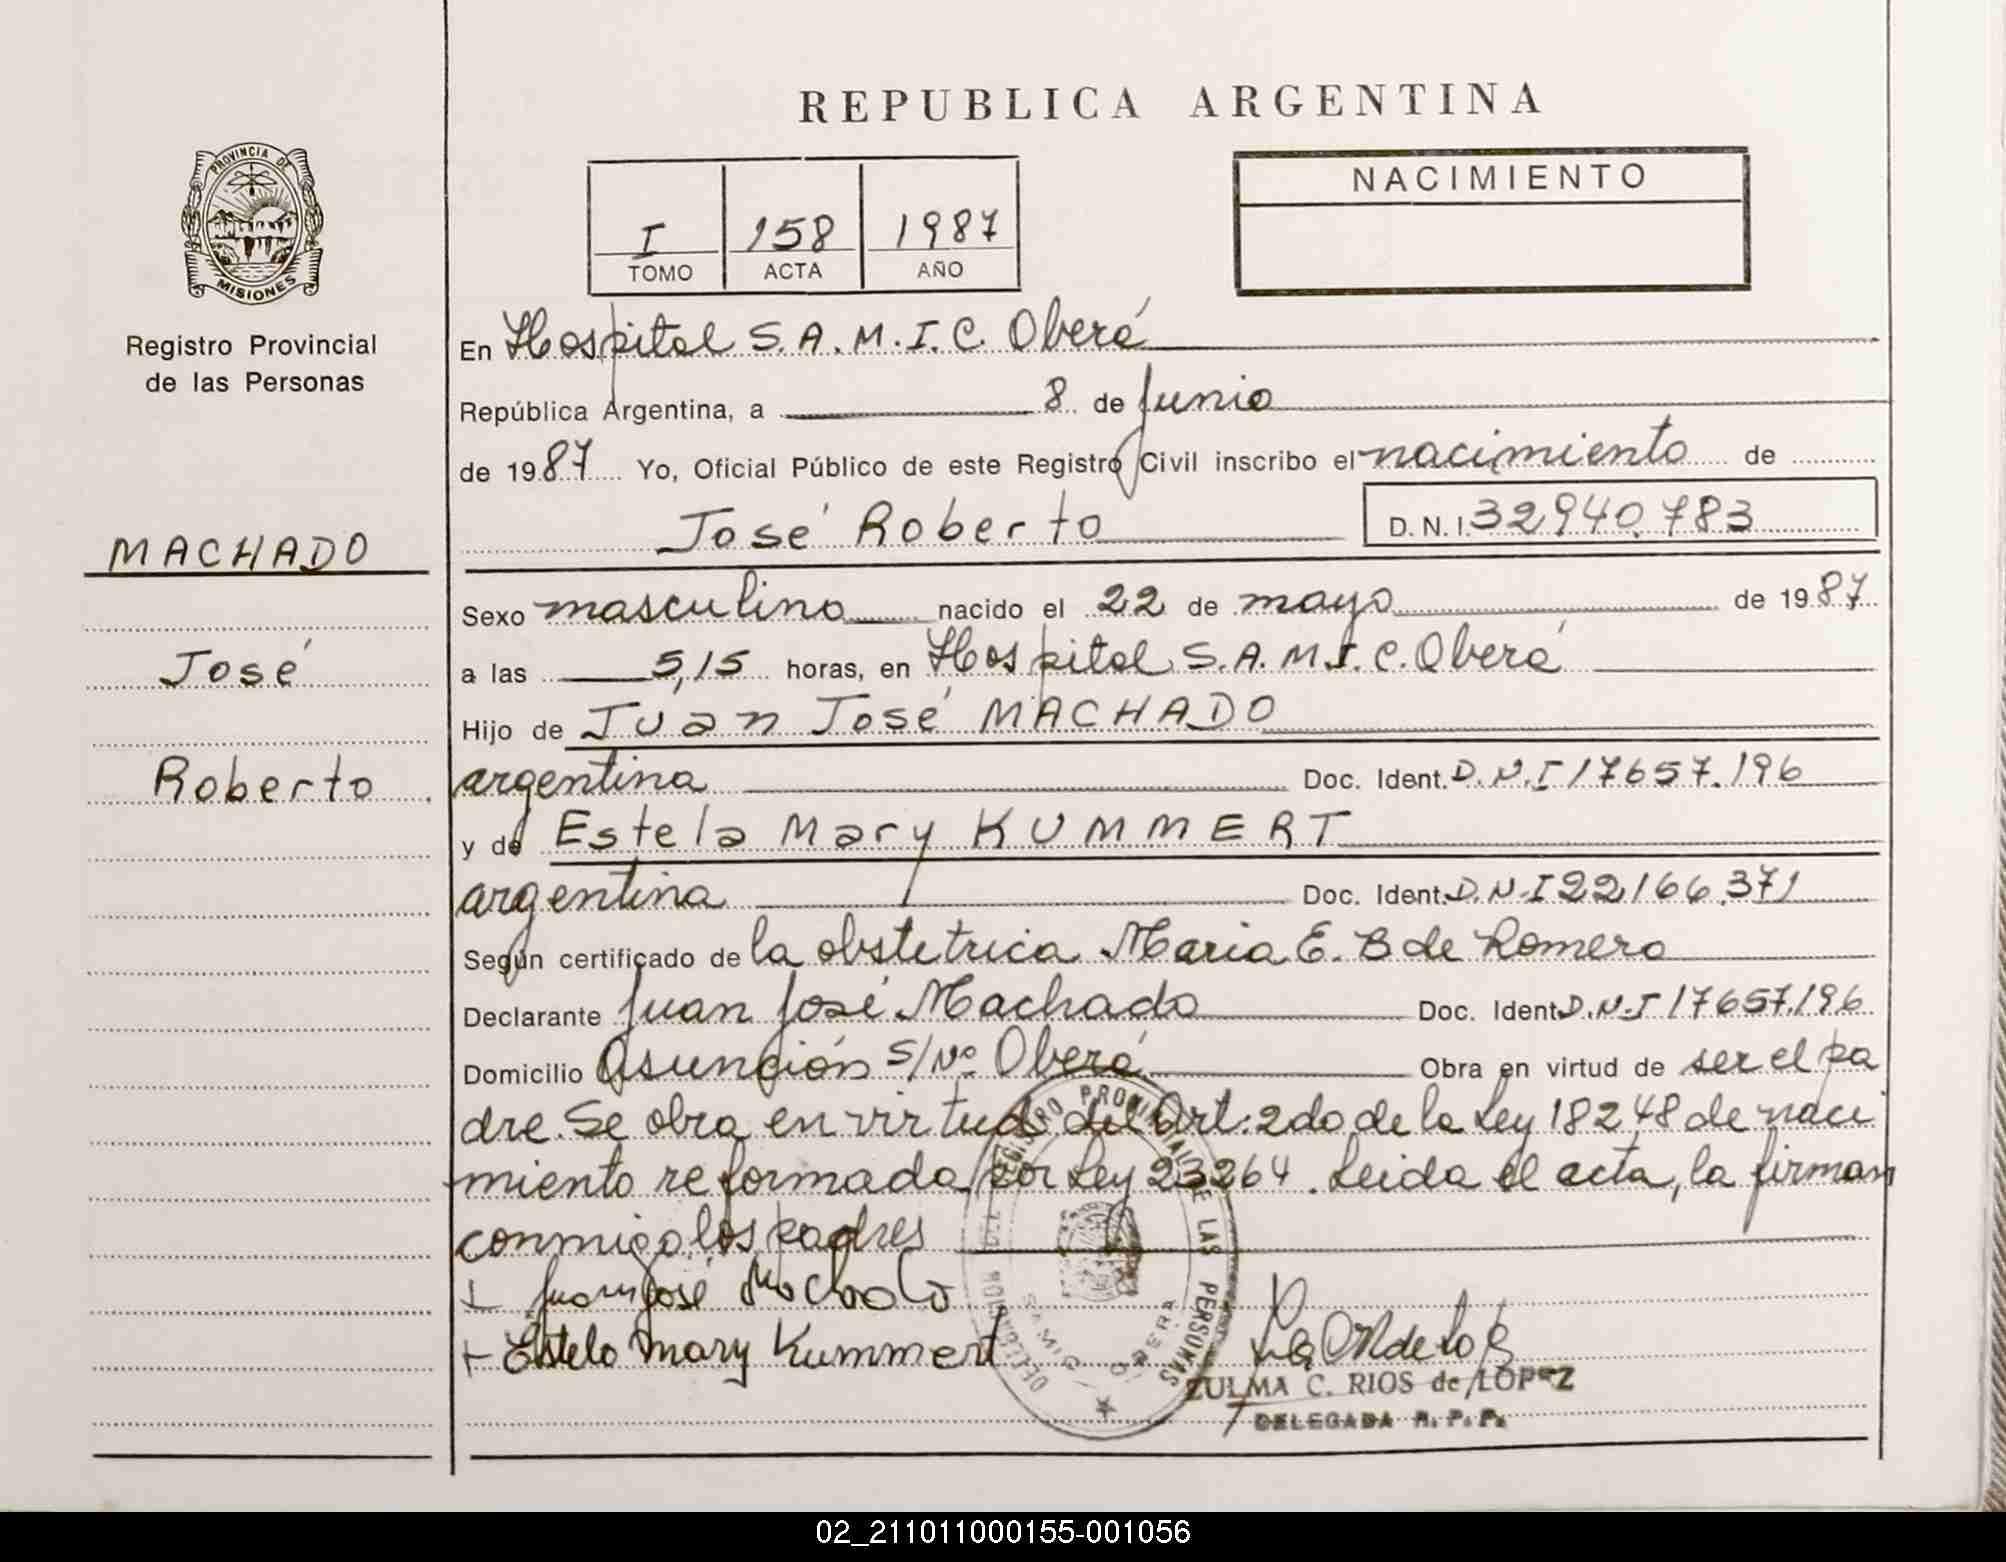 REPUBLICA ARGENTINA
PROVINCIA DE
MISIONES
Registro Provincial
de las Personas
MACHADO
José
Roberto
I 158 1987
TOMO ACTA AÑO
NACIMIENTO
En Hospital S.A.M.I.C. Oberá
República Argentina, a 8 de Junio
de 1987 Yo, Oficial Público de este Registro Civil inscribo el nacimiento de
José Roberto D.N.I. 32940.783
Sexo masculino nacido el 22 de mayo de 1987
a las 5,15 horas, en Hospital S.A.M.I.C. Oberá
Hijo de Juan José MACHADO
argentina Doc. Ident. D.N.I 17657.196
y de Estela Mary KUMMERT
argentina Doc. Ident. D.N.I 22166.371
Según certificado de la obstetrica Maria E. B de Romero
Declarante Juan José Machado Doc. Ident. D.N.I 17657.196
Domicilio Asunción S/Nº Oberá Obra en virtud de ser el pa
dre. Se obra en virtud del Art. 2do de la Ley 18248 de naci
miento reformada por Ley 23264. Leida el acta, la firman
conmigo los padres
Juan José Machado
Estela Mary Kummert
REGISTRO PROVINCIAL DE LAS PERSONAS
DELEGACION
OBERA
ZULMA C. RIOS de LOPEZ
DELEGADA R. P. P.
02_211011000155-001056